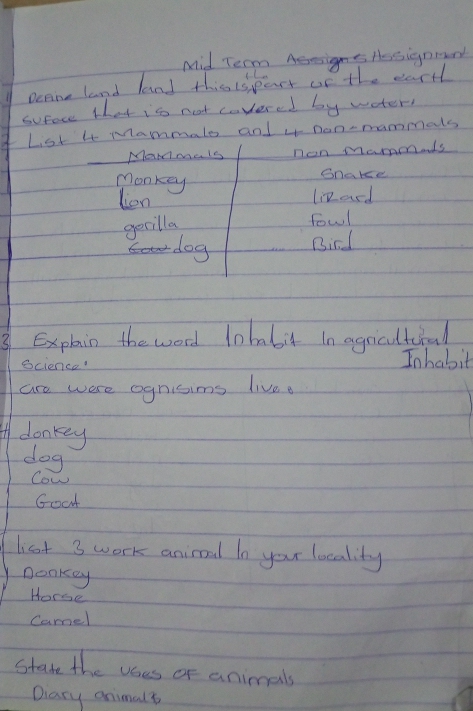 Mid Term Assignment
1 Define land land this is the part of the earth
suface that is not covered by water.
2 List 4 Mammals and 4 non-mammals
Mammals non Mammals
Monkey Snake
lion lizard
gorilla fowl
Cow dog Bird
3 Explain the word Inhabit In agricultural
Science. Inhabit
are were ognisims live.
4 donkey
dog
Cow
Goat
list 3 work animal In your locality
Donkey
Horse
Camel
State the uses of animals
Diary animals